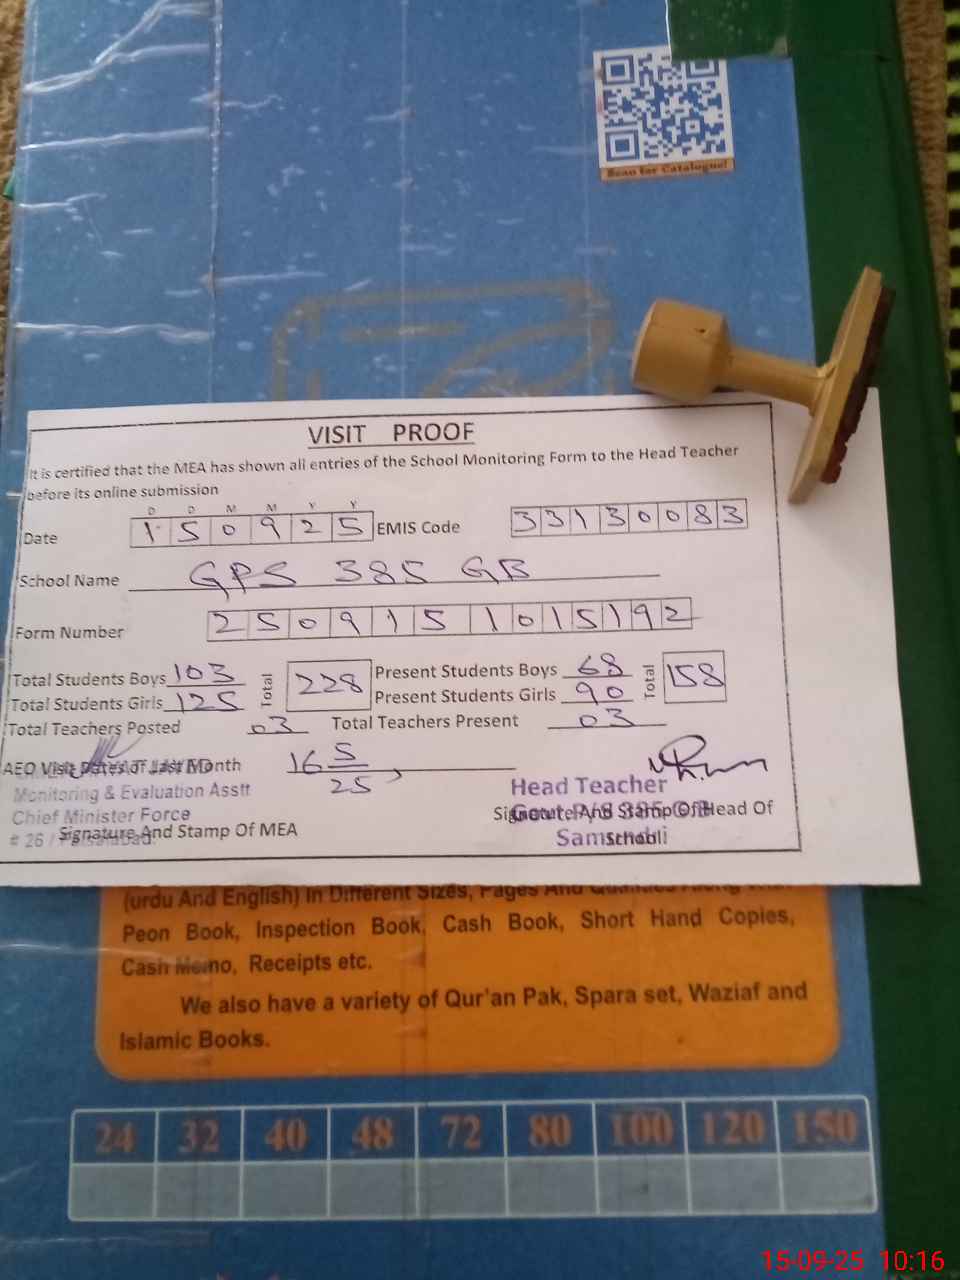 Scan for Catalogue!
VISIT PROOF
It is certified that the MEA has shown all entries of the School Monitoring Form to the Head Teacher
before its online submission
D D M M Y Y
Date 1 5 0 9 2 5 EMIS Code 3 3 1 3 0 0 8 3
School Name GPS 385 GB
Form Number 2 5 0 9 1 5 1 0 1 5 1 9 2
Total Students Boys 103 Total 228 Present Students Boys 68 Total 158
Total Students Girls 125 Present Students Girls 90
Total Teachers Posted 03 Total Teachers Present 03
AEO Visit Dates of Last Month 16 5/25
Monitoring & Evaluation Asstt
Chief Minister Force
# 26 / Faisalabad.
Signature And Stamp Of MEA
Head Teacher
Govt P/S 385 GB
Samundri
Signature And Stamp Of Head Of
School
(urdu And English) In Different Sizes, Pages And Qualities
Peon Book, Inspection Book, Cash Book, Short Hand Copies,
Cash Memo, Receipts etc.
We also have a variety of Qur'an Pak, Spara set, Waziaf and
Islamic Books.
24 32 40 48 72 80 100 120 150
15-09-25 10:16